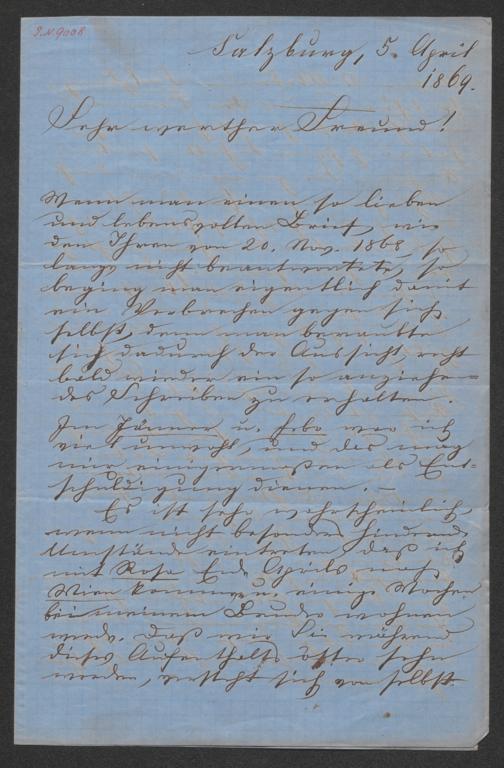 I.N. 9008
Salzburg, 5. April
1869.
Sehr werther Freund!
Wenn man einen so lieben
und lebensvollen Brief, wie
den Ihren von 20. Nov. 1868, so
lange nicht beantwortete, so
beging man eigentlich damit
ein Verbrechen gegen sich
selbst, denn man beraubte
sich dadurch der Aussicht, recht
bald wieder ein so anziehen=
des Schreiben zu erhalten.
Im Jänner u. Febr. war ich
viel unwohl, und das mag
mir einigermaßen als Ent=
schuldigung dienen. –
Es ist sehr wahrscheinlich,
wenn nicht besonders hindernde
Umstände eintreten, daß ich
mit Rosa Ende Aprils nach
Wien komme, u. einige Wochen
bei meinem Bruder wohnen
werde. Daß wir Sie während
dieses Aufenthalts öfter sehen
werden, versteht sich von selbst.